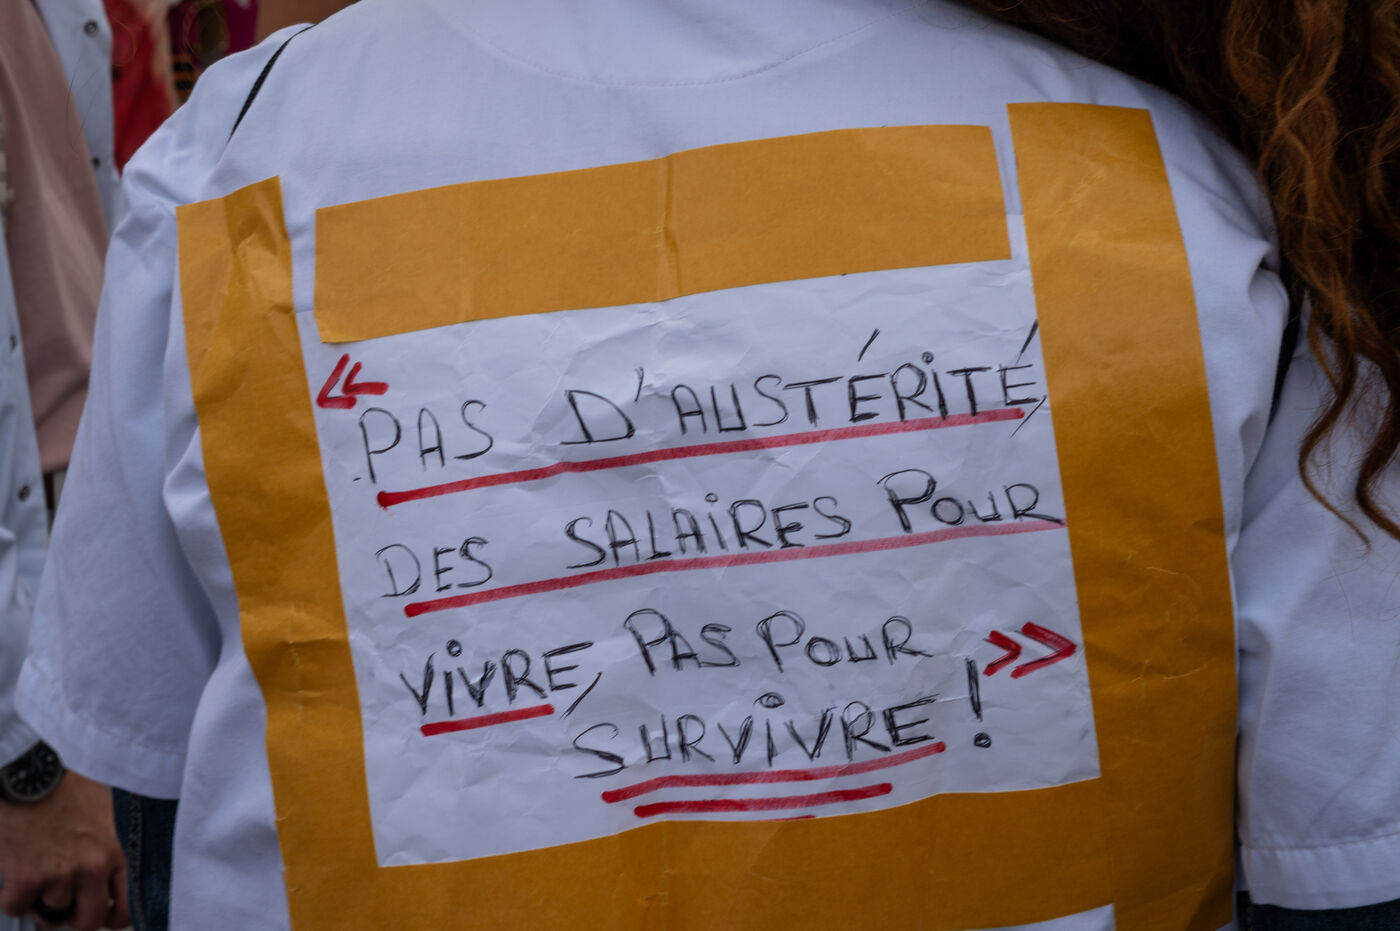 « PAS D'AUSTÉRITÉ,
DES SALAIRES POUR
VIVRE, PAS POUR
SURVIVRE ! »